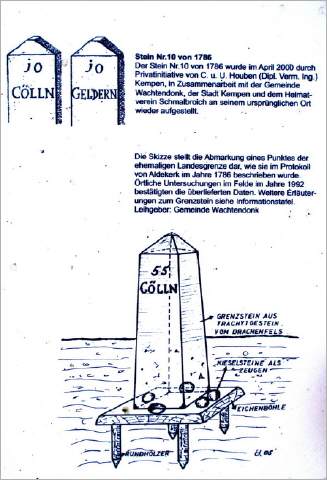 jo
CÖLLN
jo
GELDERN
Stein Nr.10 von 1786
Der Stein Nr.10 von 1786 wurde im April 2000 durch
Privatinitiative von C. u. U. Houben (Dipl. Verm. Ing.)
Kempen, in Zusammenarbeit mit der Gemeinde
Wachtendonk, der Stadt Kempen und dem Heimat-
verein Schmalbroich an seinem ursprünglichen Ort
wieder aufgestellt.
Die Skizze stellt die Abmarkung eines Punktes der
ehemaligen Landesgrenze dar, wie sie im Protokoll
von Aldekerk im Jahre 1786 beschrieben wurde.
Örtliche Untersuchungen im Felde im Jahre 1992
bestätigten die überlieferten Daten. Weitere Erläuter-
ungen zum Grenzstein siehe Informationstafel.
Leihgeber: Gemeinde Wachtendonk
55
CÖLLN
GRENZSTEIN AUS
TRACHYTGESTEIN
VOM DRACHENFELS
KIESELSTEINE ALS
ZEUGEN
EICHENBOHLE
RUNDHÖLZER